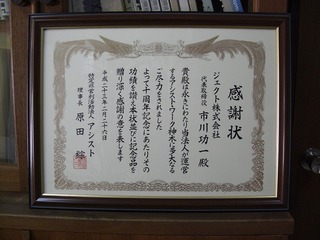 感謝状
ジェクト株式会社
代表取締役
市川功一殿
貴殿は永きにわたり当法人が運営
するアシストワーク神木に多大なる
ご尽力をされました
よって十周年記念にあたりその
功績を讃え本状並びに記念品を
贈り深く感謝の意を表します
平成二十三年二月二十六日
特定非営利活動法人 アシスト
理事長 原田